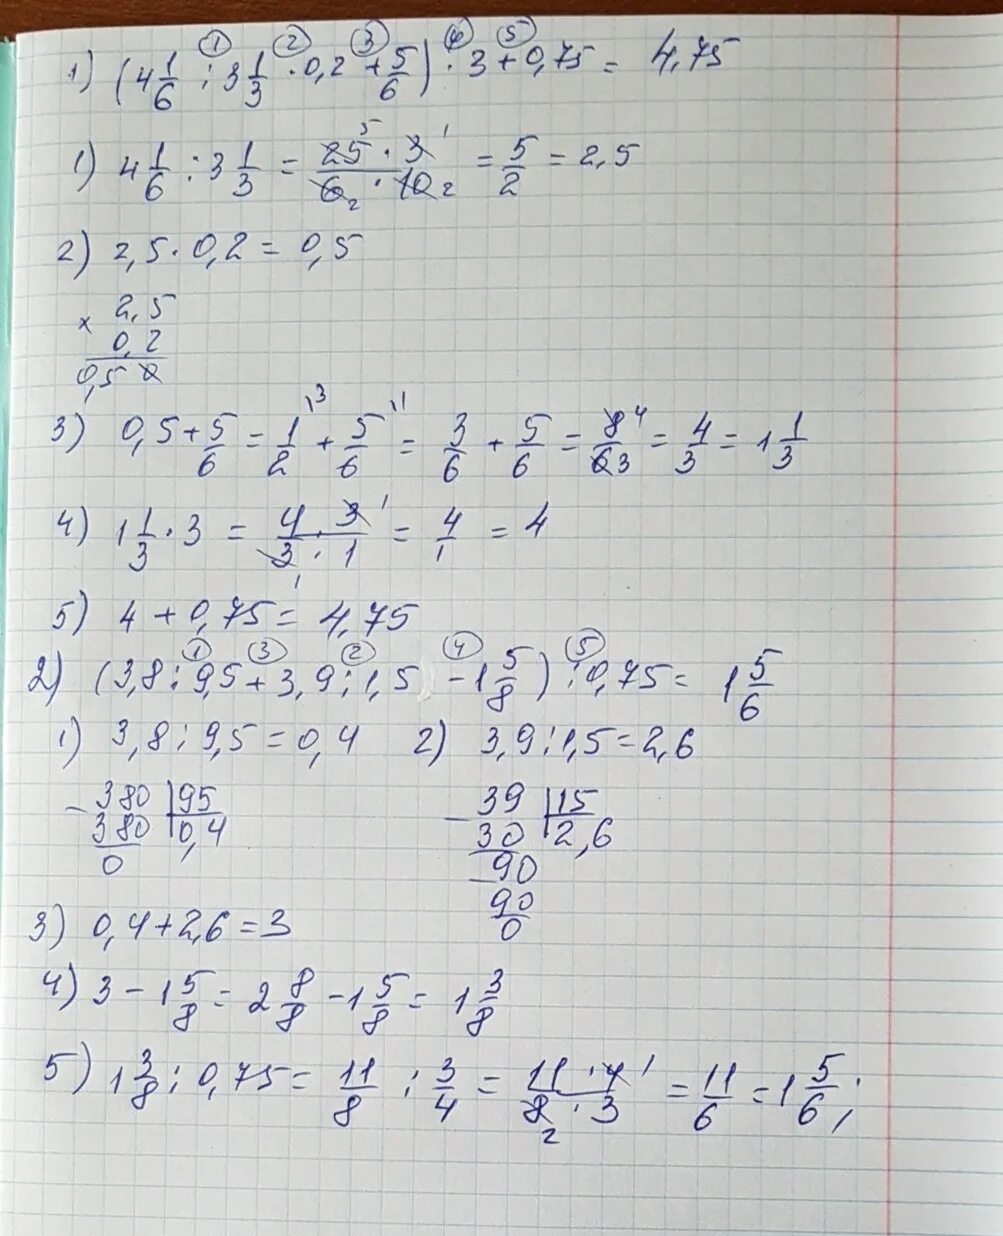 ① ② ③ ④ ⑤
1) (4 1/6 : 3 1/3 · 0,2 + 5/6) · 3 + 0,75 = 4,75
1) 4 1/6 : 3 1/3 = 25 5 · 3 1 / 6 2 · 10 2 = 5/2 = 2,5
2) 2,5 · 0,2 = 0,5
× 2,5
0,2
0,5 0
3) 0,5 + 5/6 = 1/2 \3 + 5/6 \1 = 3/6 + 5/6 = 8 4 / 6 3 = 4/3 = 1 1/3
4) 1 1/3 · 3 = 4 · 3 1 / 3 1 · 1 = 4/1 = 4
5) 4 + 0,75 = 4,75
① ③ ② ④ ⑤
2) (3,8 : 9,5 + 3,9 : 1,5 - 1 5/8) : 0,75 = 1 5/6
1) 3,8 : 9,5 = 0,4 2) 3,9 : 1,5 = 2,6
- 380 | 95
380 | 0,4
0
- 39 | 15
30 | 2,6
- 90
90
0
3) 0,4 + 2,6 = 3
4) 3 - 1 5/8 = 2 8/8 - 1 5/8 = 1 3/8
5) 1 3/8 : 0,75 = 11/8 : 3/4 = 11 · 4 1 / 8 2 · 3 = 11/6 = 1 5/6;